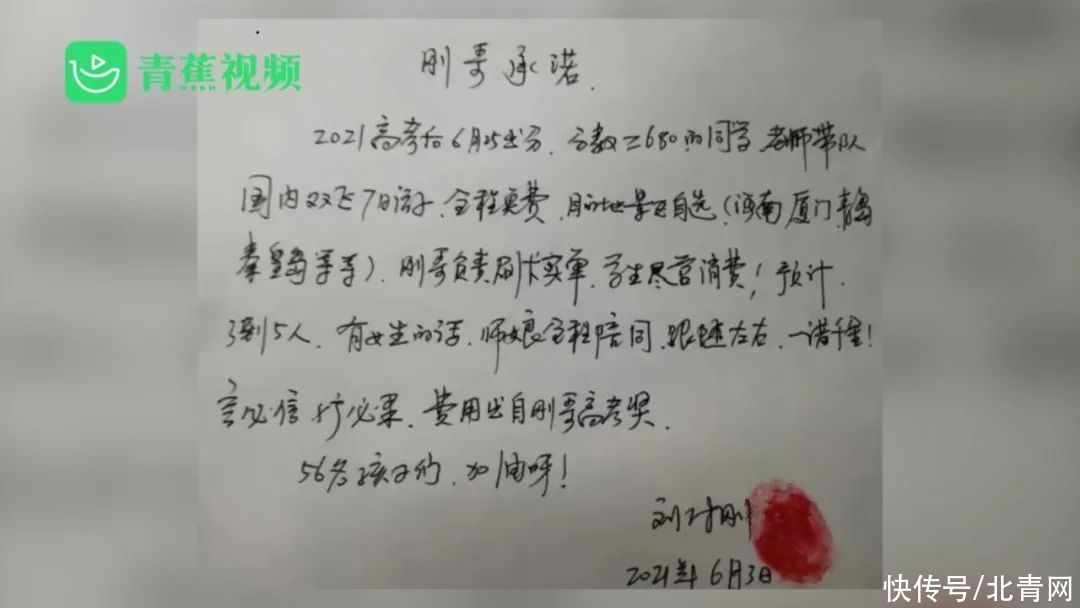 青蕉视频
刚哥承诺.
2021高考后6月25出分、分数≥680的同学、老师带队
国内双飞7日游、全程免费、目的地景区自选(海南,厦门,青岛
秦皇岛等等)、刚哥负责刷卡买单、学生尽管消费！预计.
3到5人、有女生的话、师娘全程陪同、跟随左右、一诺千金！
言必信行必果、费用出自刚哥高考奖.
56名孩子们、加油呀！
刘 刚
2021年6月3日
快传号/北青网